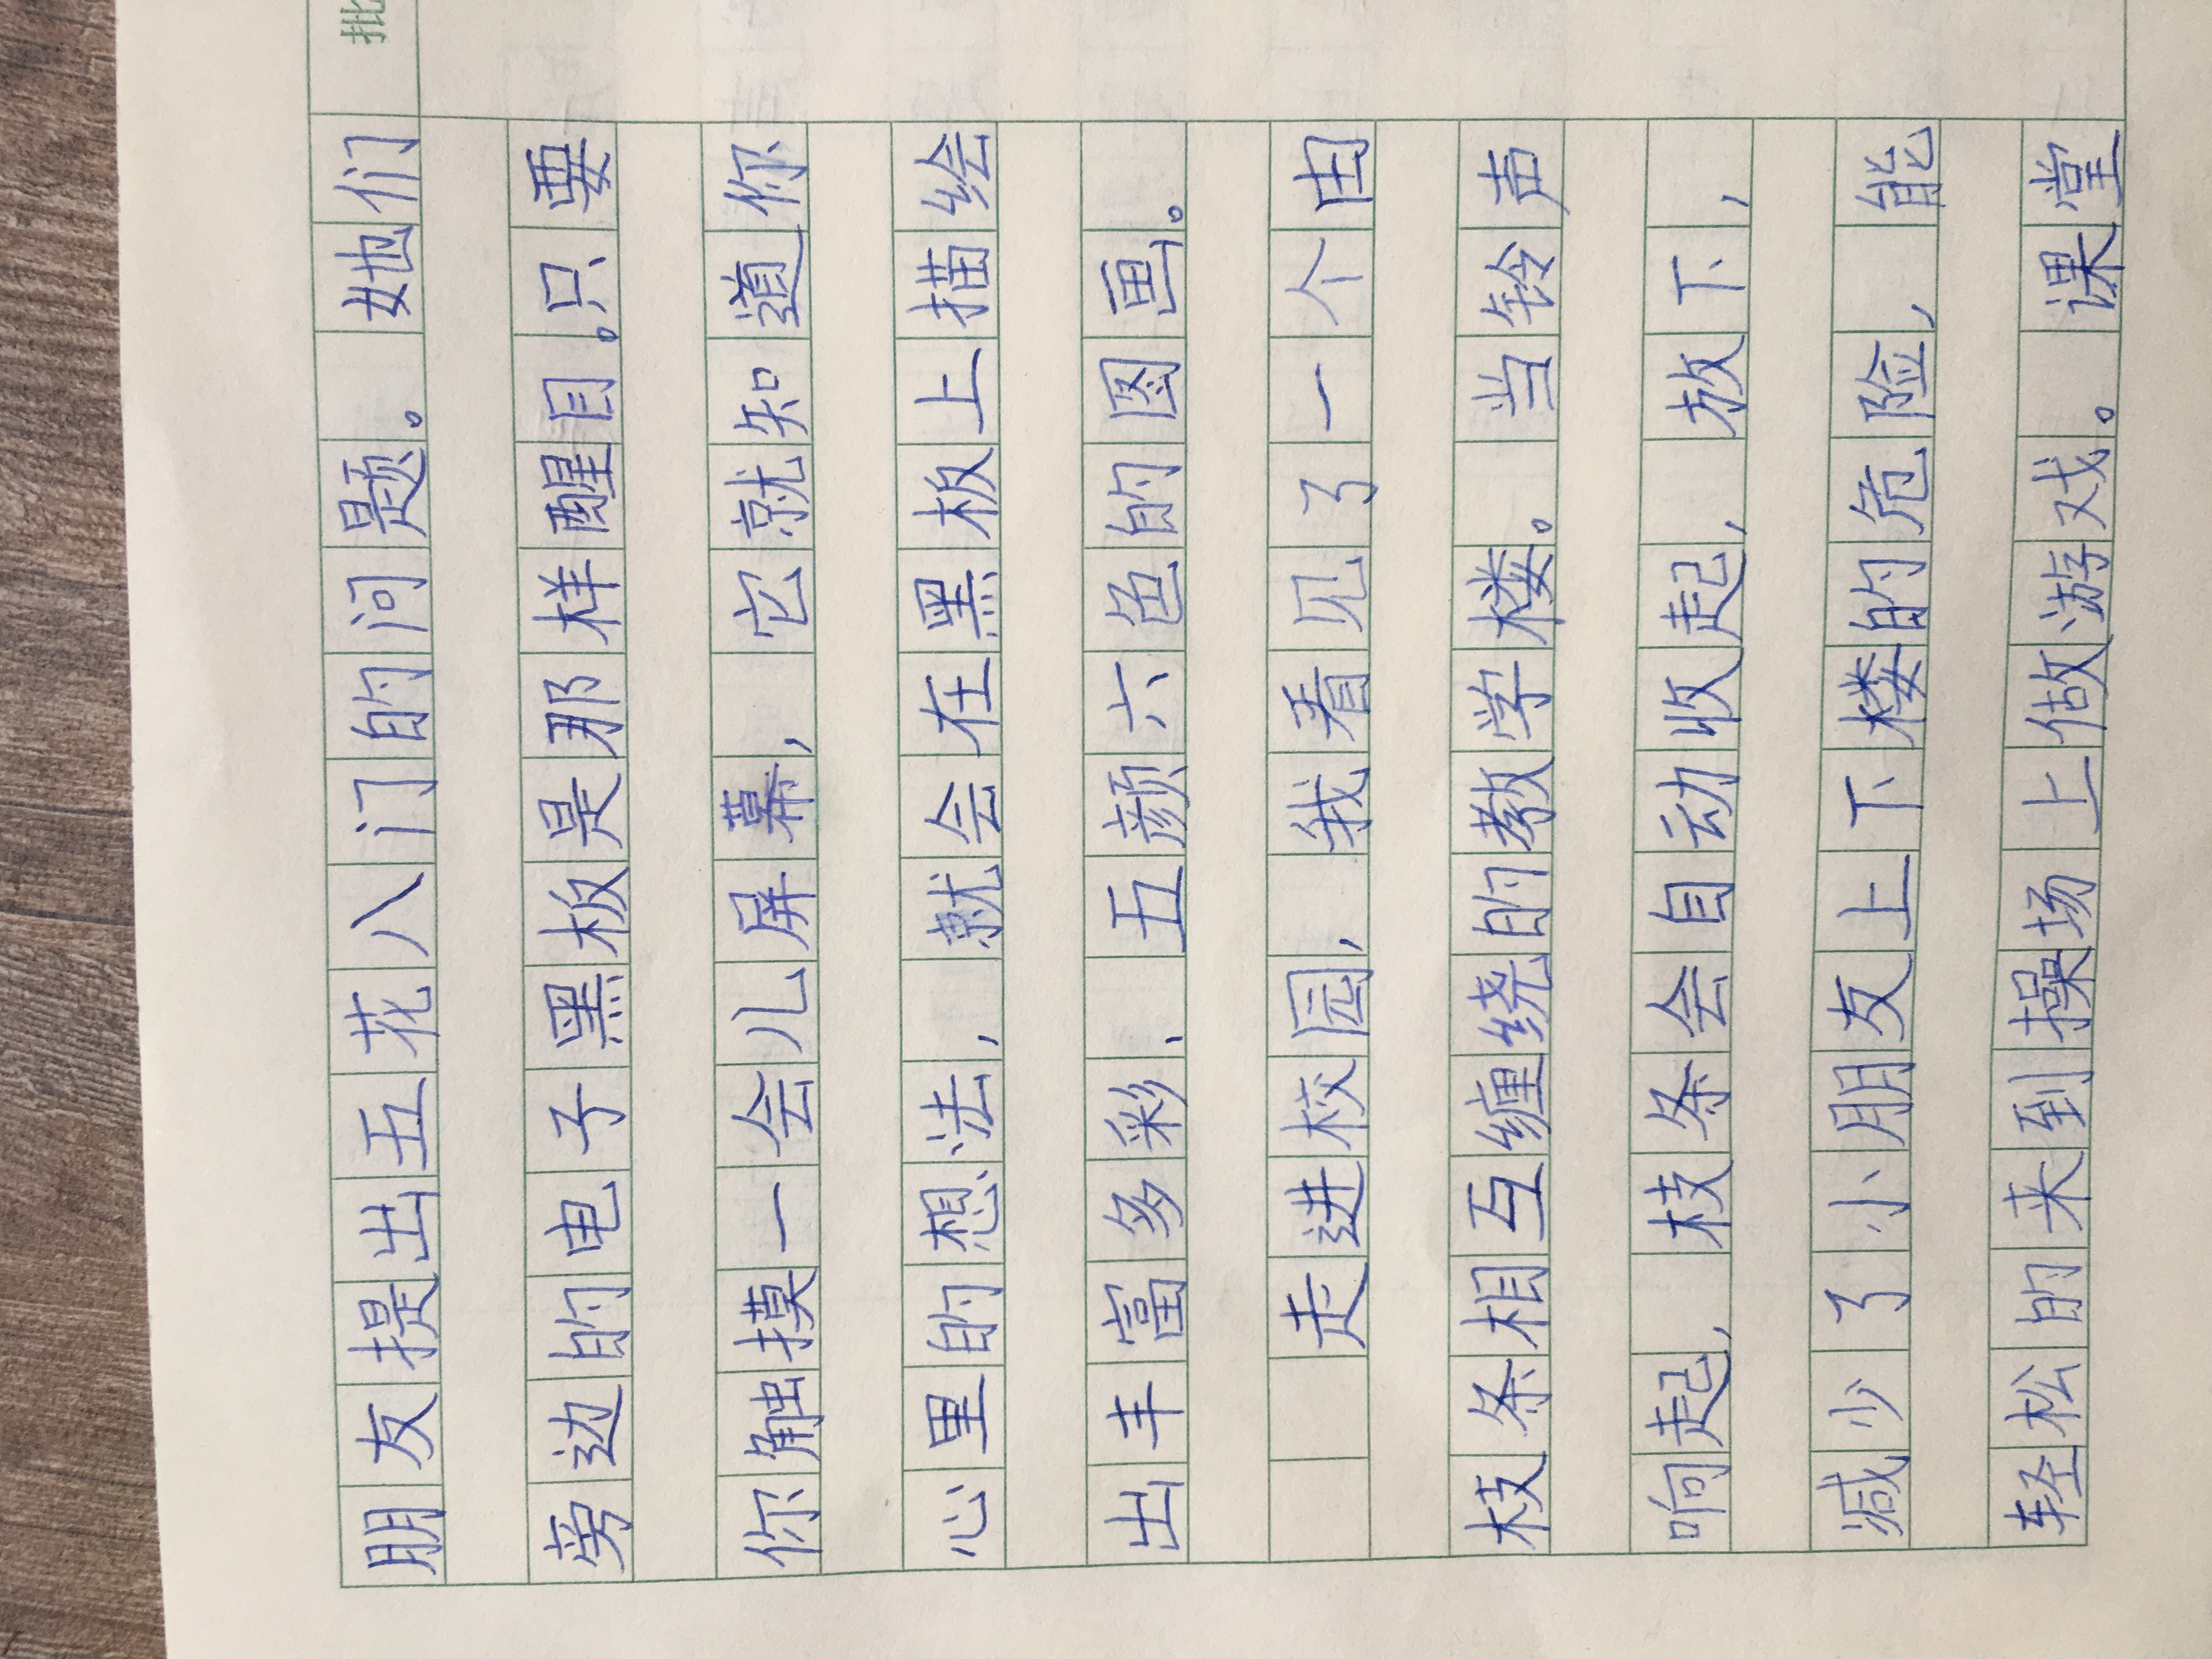 批
朋友提出五花八门的问题。她们
旁边的电子黑板是那样醒目。只要
你触摸一会儿屏幕，它就知道你
心里的想法，就会在黑板上描绘
出丰富多彩、五颜六色的图画。
走进校园，我看见了一个由
枝条相互缠绕的教学楼。当铃声
响起，枝条会自动收起，放下，
减少了小朋友上下楼的危险，能
轻松的来到操场上做游戏。课堂